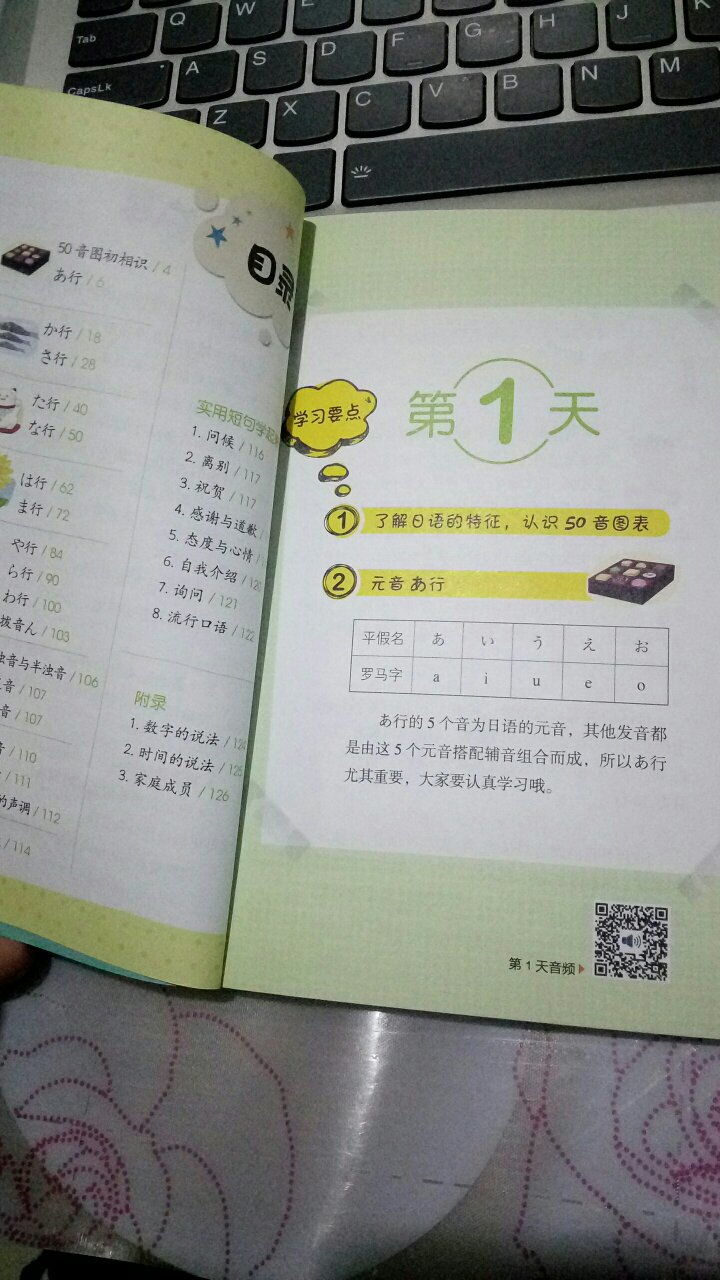 Tab Q W E R T Y U I
CapsLk A S D F G H J K
Z X C V B N M
目录
50 音图初相识 / 4
あ行 / 6
か行 / 18
さ行 / 28
た行 / 40
な行 / 50
は行 / 62
ま行 / 72
や行 / 84
ら行 / 90
わ行 / 100
拨音ん / 103
音与半浊音 / 106
音 / 107
音 / 107
音 / 110
/ 111
的声调 / 112
/ 114
实用短句学起
1. 问候 / 116
2. 离别 / 117
3. 祝贺 / 117
4. 感谢与道歉 /
5. 态度与心情 /
6. 自我介绍 / 120
7. 询问 / 121
8. 流行口语 / 122
附录
1. 数字的说法 / 124
2. 时间的说法 / 125
3. 家庭成员 / 126
学习要点
第 1 天
1 了解日语的特征，认识 50 音图表
2 元音 あ行
平假名 あ い う え お
罗马字 a i u e o
あ行的 5 个音为日语的元音，其他发音都
是由这 5 个元音搭配辅音组合而成，所以あ行
尤其重要，大家要认真学习哦。
第 1 天音频